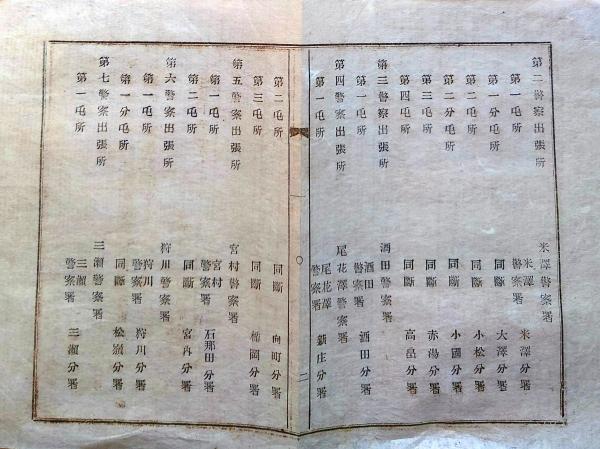 第二警察出張所 米澤警察署
第一屯所 米澤警察署 米澤分署
第一分屯所 同斷 大澤分署
第二屯所 同斷 小松分署
第二分屯所 同斷 小國分署
第三屯所 同斷 赤湯分署
第四屯所 同斷 高畠分署
第三警察出張所 酒田警察署
第一屯所 酒田警察署 酒田分署
第四警察出張所 尾花澤警察署
第一屯所 尾花澤警察署 新庄分署
一 〇 二
第二屯所 同斷 向町分署
第三屯所 同斷 楯岡分署
第五警察出張所 宮村警察署
第一屯所 宮村警察署 石那田分署
第二屯所 同斷 宮内分署
第六警察出張所 狩川警察署
第一屯所 狩川警察署 狩川分署
第一分屯所 同斷 松嶺分署
第七警察出張所 三瀬警察署
第一屯所 三瀬警察署 三瀬分署